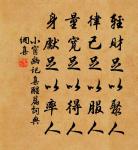 輕財足以聚人
律己足以服人
量寬足以得人
身獻足以率人
小窗幽記集醒篇詞典
網集